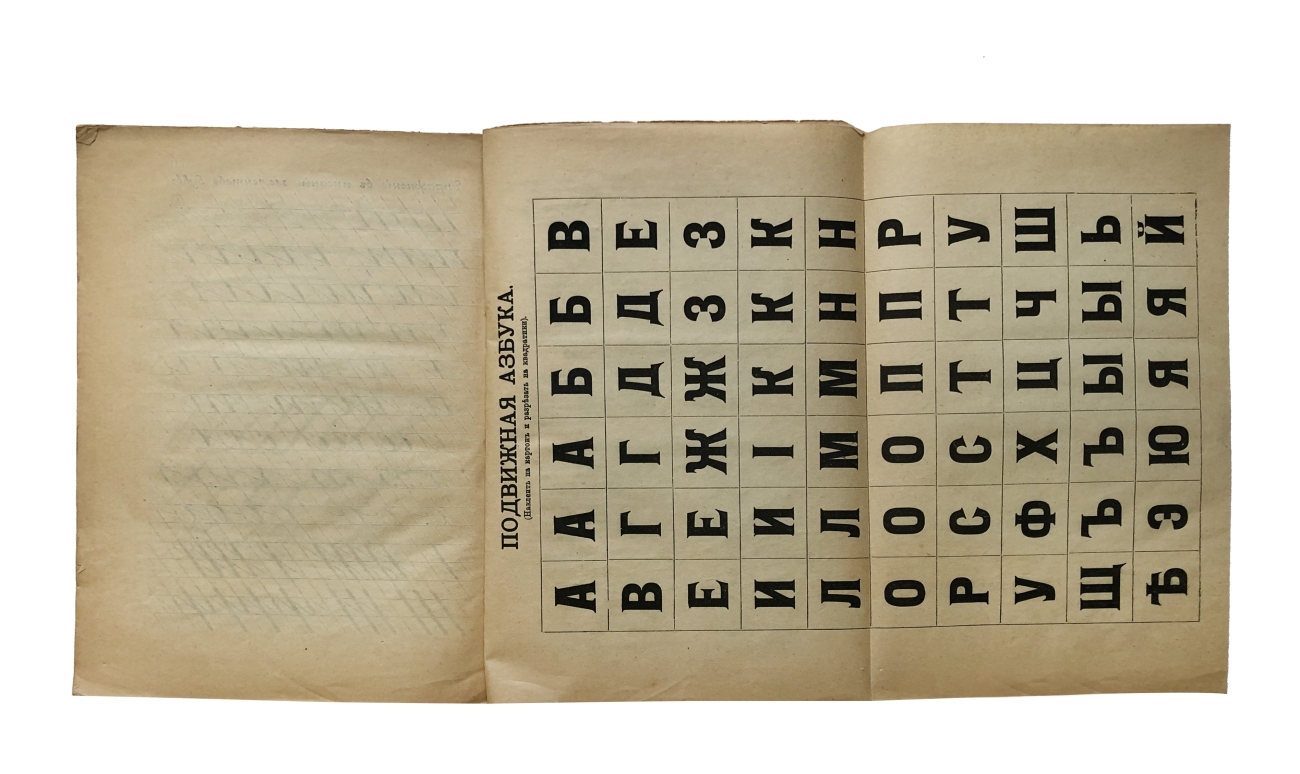 ПОДВИЖНАЯ АЗБУКА.
(Наклеить на картонъ и разрѣзать на квадратики).
А А А Б Б В
В Г Г Д Д Е
Е Е Ж Ж З З
И И І К К К
Л Л М М Н Н
О О О П П Р
Р С С Т Т У
У Ф Х Ц Ч Ш
Щ Ъ Ъ Ы Ы Ь
Ѣ Э Ю Я Я Й